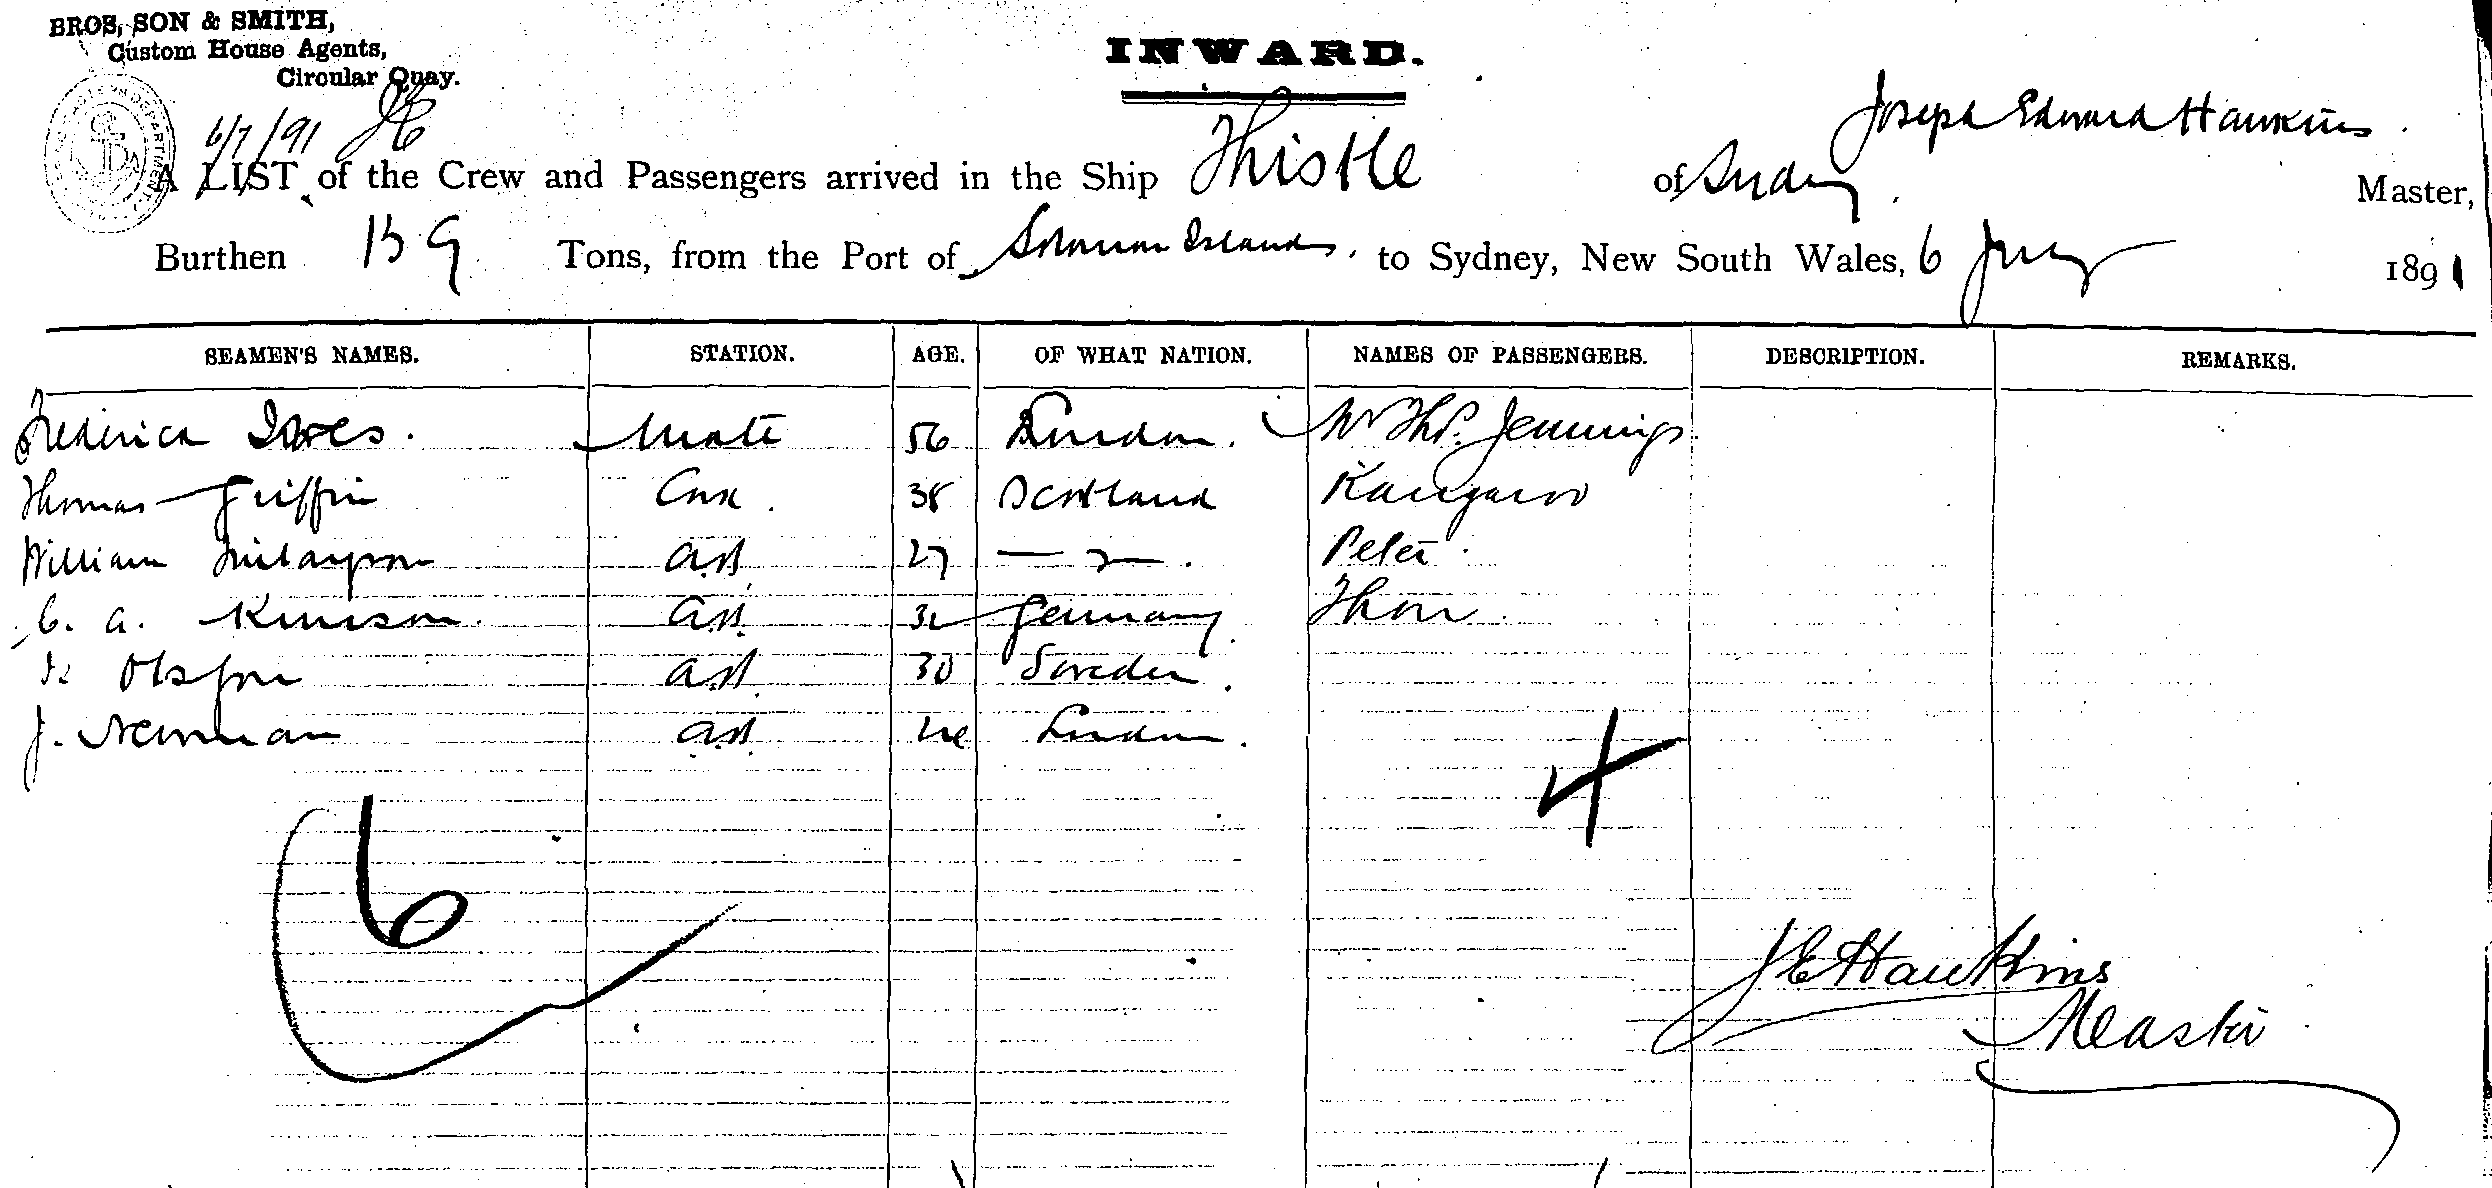 BROS, SON & SMITH,
Custom House Agents,
Circular Quay.
INWARD.
6/7/91
Joseph Edward Hawkins.
A LIST of the Crew and Passengers arrived in the Ship Thistle of Sydney. Master,
Burthen 159 Tons, from the Port of Solomon Islands. to Sydney, New South Wales, 6 July 1891
SEAMEN'S NAMES. STATION. AGE. OF WHAT NATION. NAMES OF PASSENGERS. DESCRIPTION. REMARKS.
Frederick Ives. Mate 56 London. Mr Thos. Jennings
Thomas Griffin Cook. 38 Scotland Kangaroo
William A.B. 27 — " — . Peter.
C. A. A.B. Germany Thon.
Olsson A.B. 30 Sweden.
J. Newman A.B. London.
6
4
J E Hawkins
Master